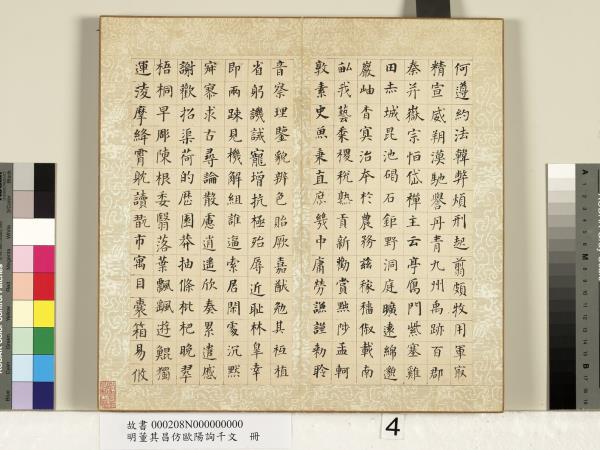 何遵約法韓弊煩刑起翦頗牧用軍最
精宣威朔漠馳譽丹青九州禹跡百郡
秦并嶽宗恒岱禪主云亭鴈門紫塞雞
田赤城昆池碣石鉅野洞庭曠遠綿邈
巖岫杳冥治本於農務茲稼穡俶載南
畝我藝黍稷稅熟貢新勸賞黜陟孟軻
敦素史魚秉直庶幾中庸勞謙謹勑聆
音察理鑒貌辨色貽厥嘉猷勉其祗植
省躬譏誡寵增抗極殆辱近恥林皐幸
即兩疎見機解組誰逼索居閑處沉默
寂寥求古尋論散慮逍遙欣奏累遣慼
謝歡招渠荷的歷園莽抽條枇杷晚翠
梧桐早彫陳根委翳落葉飄颻遊鯤獨
運淩摩絳霄耽讀翫市寓目囊箱易攸
故書 000208N000000000
明董其昌仿歐陽詢千文 冊
4